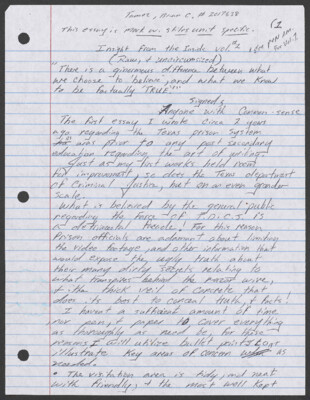 Torres, Brian C, #
This essay is mark w. stiles unit specific.
(1
Insight from the Inside vol #2
(Raw, & uncircumcised)
"There is a ginormous difference between what
we choose to believe, and what we know
to be factually TRUE!"
Signed,
Anyone with Common sense
The first essay I wrote circa 2 years
ago regarding the Texas prison system
was prior to any post secondary
education regarding the art of
Just as my last work held room
for improvement, so does the Texas department
of Criminal Justice, but on an even grander
scale.
What is believed by the general public
regarding the farce of T.D.C.J. is
a detrimental . For this reason
Prison officials are adamant about limiting
the video footage, and other information that
would expose the ugly truth about
their money dirty secrets relating to
what transpires behind the razor wire,
& the thick veil of concrete that
does its best to conceal truth, & facts!
I haven't a sufficient amount of time
nor pen, & paper to cover everything
as thoroughly as need be, for those
reasons I will utilize bullet points to
illustrate key areas of concern as
needed.
• The visitation area is tidy, and neat
with friendly, & the most well kept